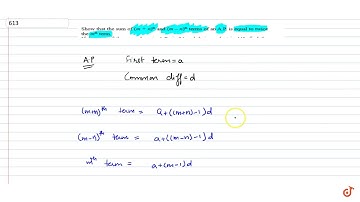 613
Show that the sum of (m + n)th and (m - n)th terms of an A.P. is equal to twice
the mth term.
A.P First term = a
Common diff = d
(m+n)th term = a+((m+n)-1)d
(m-n)th term = a+((m-n)-1)d
mth term = a+(m-1)d